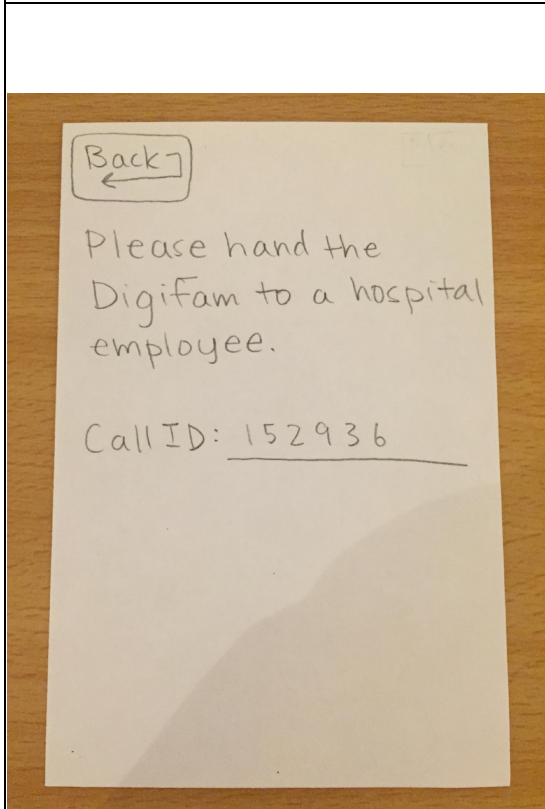 Back
Please hand the
Digifam to a hospital
employee.
Call ID: 152936